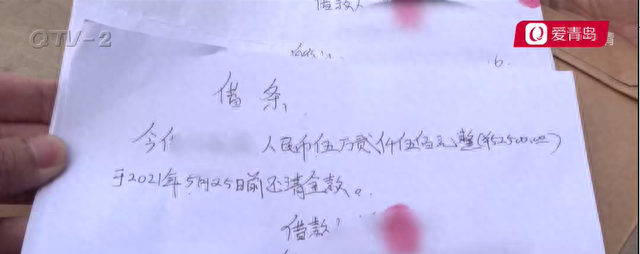 QTV-2
爱青岛
借款人
6.
借条
今借 人民币伍万贰仟伍佰元整(¥52500.00)
于2021年5月25日前还清全款。
借款